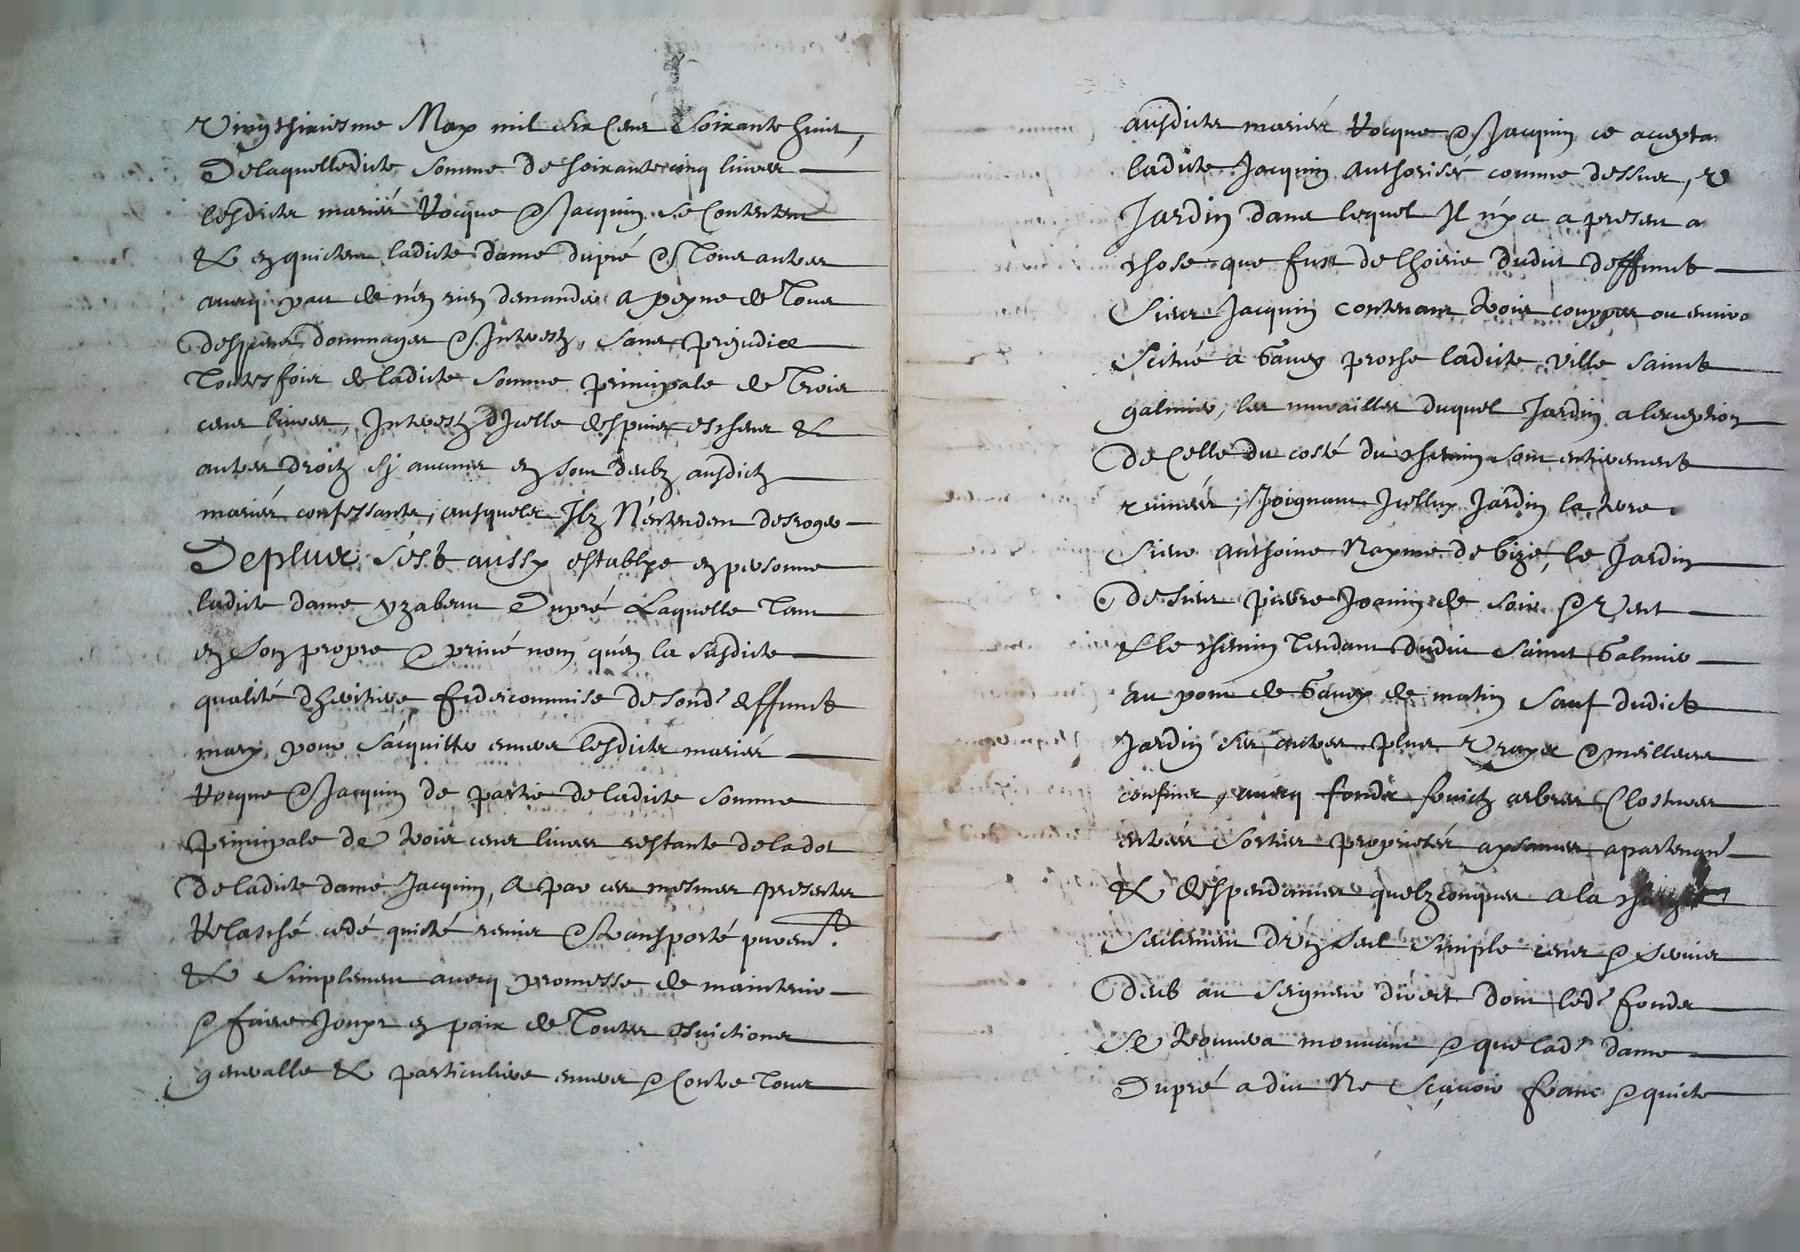 Vingthuiesme May mil six cens soixante huit,
De laquelle dicte somme de soixante cinq livres
lesdictz mariés Rocque & Jacquin se contentent
& en quictent ladicte dame dupré & tous autres
avecq pact de n'en rien demander a peyne de tous
despens dommages & Interestz, sans préjudice
touttesfois de ladicte somme principale de trois
cens livres, Interestz d'Icelle despuis escheus &
autres droitz sy aucuns en sont deubz ausdictz
mariés confessants, ausquels Ilz N'entendent desroger
De plus s'est aussy establye en personne
ladicte dame yzabeau Dupré Laquelle tant
en son propre & privé nom qu'en la susdicte
qualité d'héritière fideicommise de sond' deffunct
mary, pour s'acquitter envers lesdictz mariés
Rocque & Jacquin de partie de ladicte somme
principale de trois cens livres restante de la dot
de ladicte dame Jacquin, a par ces mesmes presentes
Relasché cedé quicté remis & transporté purem.t
& simplement avecq promesse de maintenir
& faire Jouyr en paix de touttes esvictions
generalle & particuliere envers & contre tous
ausdictz mariés Rocque & Jacquin ce accepta
ladicte Jacquin authorisée comme dessus, v
Jardin dans lequel Il n'y a a present a
chose que fust de l'hoirie dudict deffunct
Sieur Jacquin contenant trois couppes ou enviro
Scitué a Gavey proche ladicte ville sainct
galmier, les murailles duquel Jardin a l'exception
de celle du costé du chemin sont entierement
ruinées, Joignant Icelluy Jardin la terre
Sieur anthoine Nayme de bize, le Jardin
de sieur pierre Joanin de soir & Vent
& le chemin tendant dudict Sainct Galmier
au pont de Gavey de matin sauf dudict
Jardin ses autres plus vrayes & meilleurs
confins, avecq fondz fruictz arbres Clostures
entrées sorties proprietés aysances apartenan.
& despendances quelzconques a la charge
seulement d'un seul simple cens & servis
deub au seigneur direct dont led.t fondz
se trouvera mouvant & que lad.e dame
Dupré a dict Ne Sçavoir franc & quicte